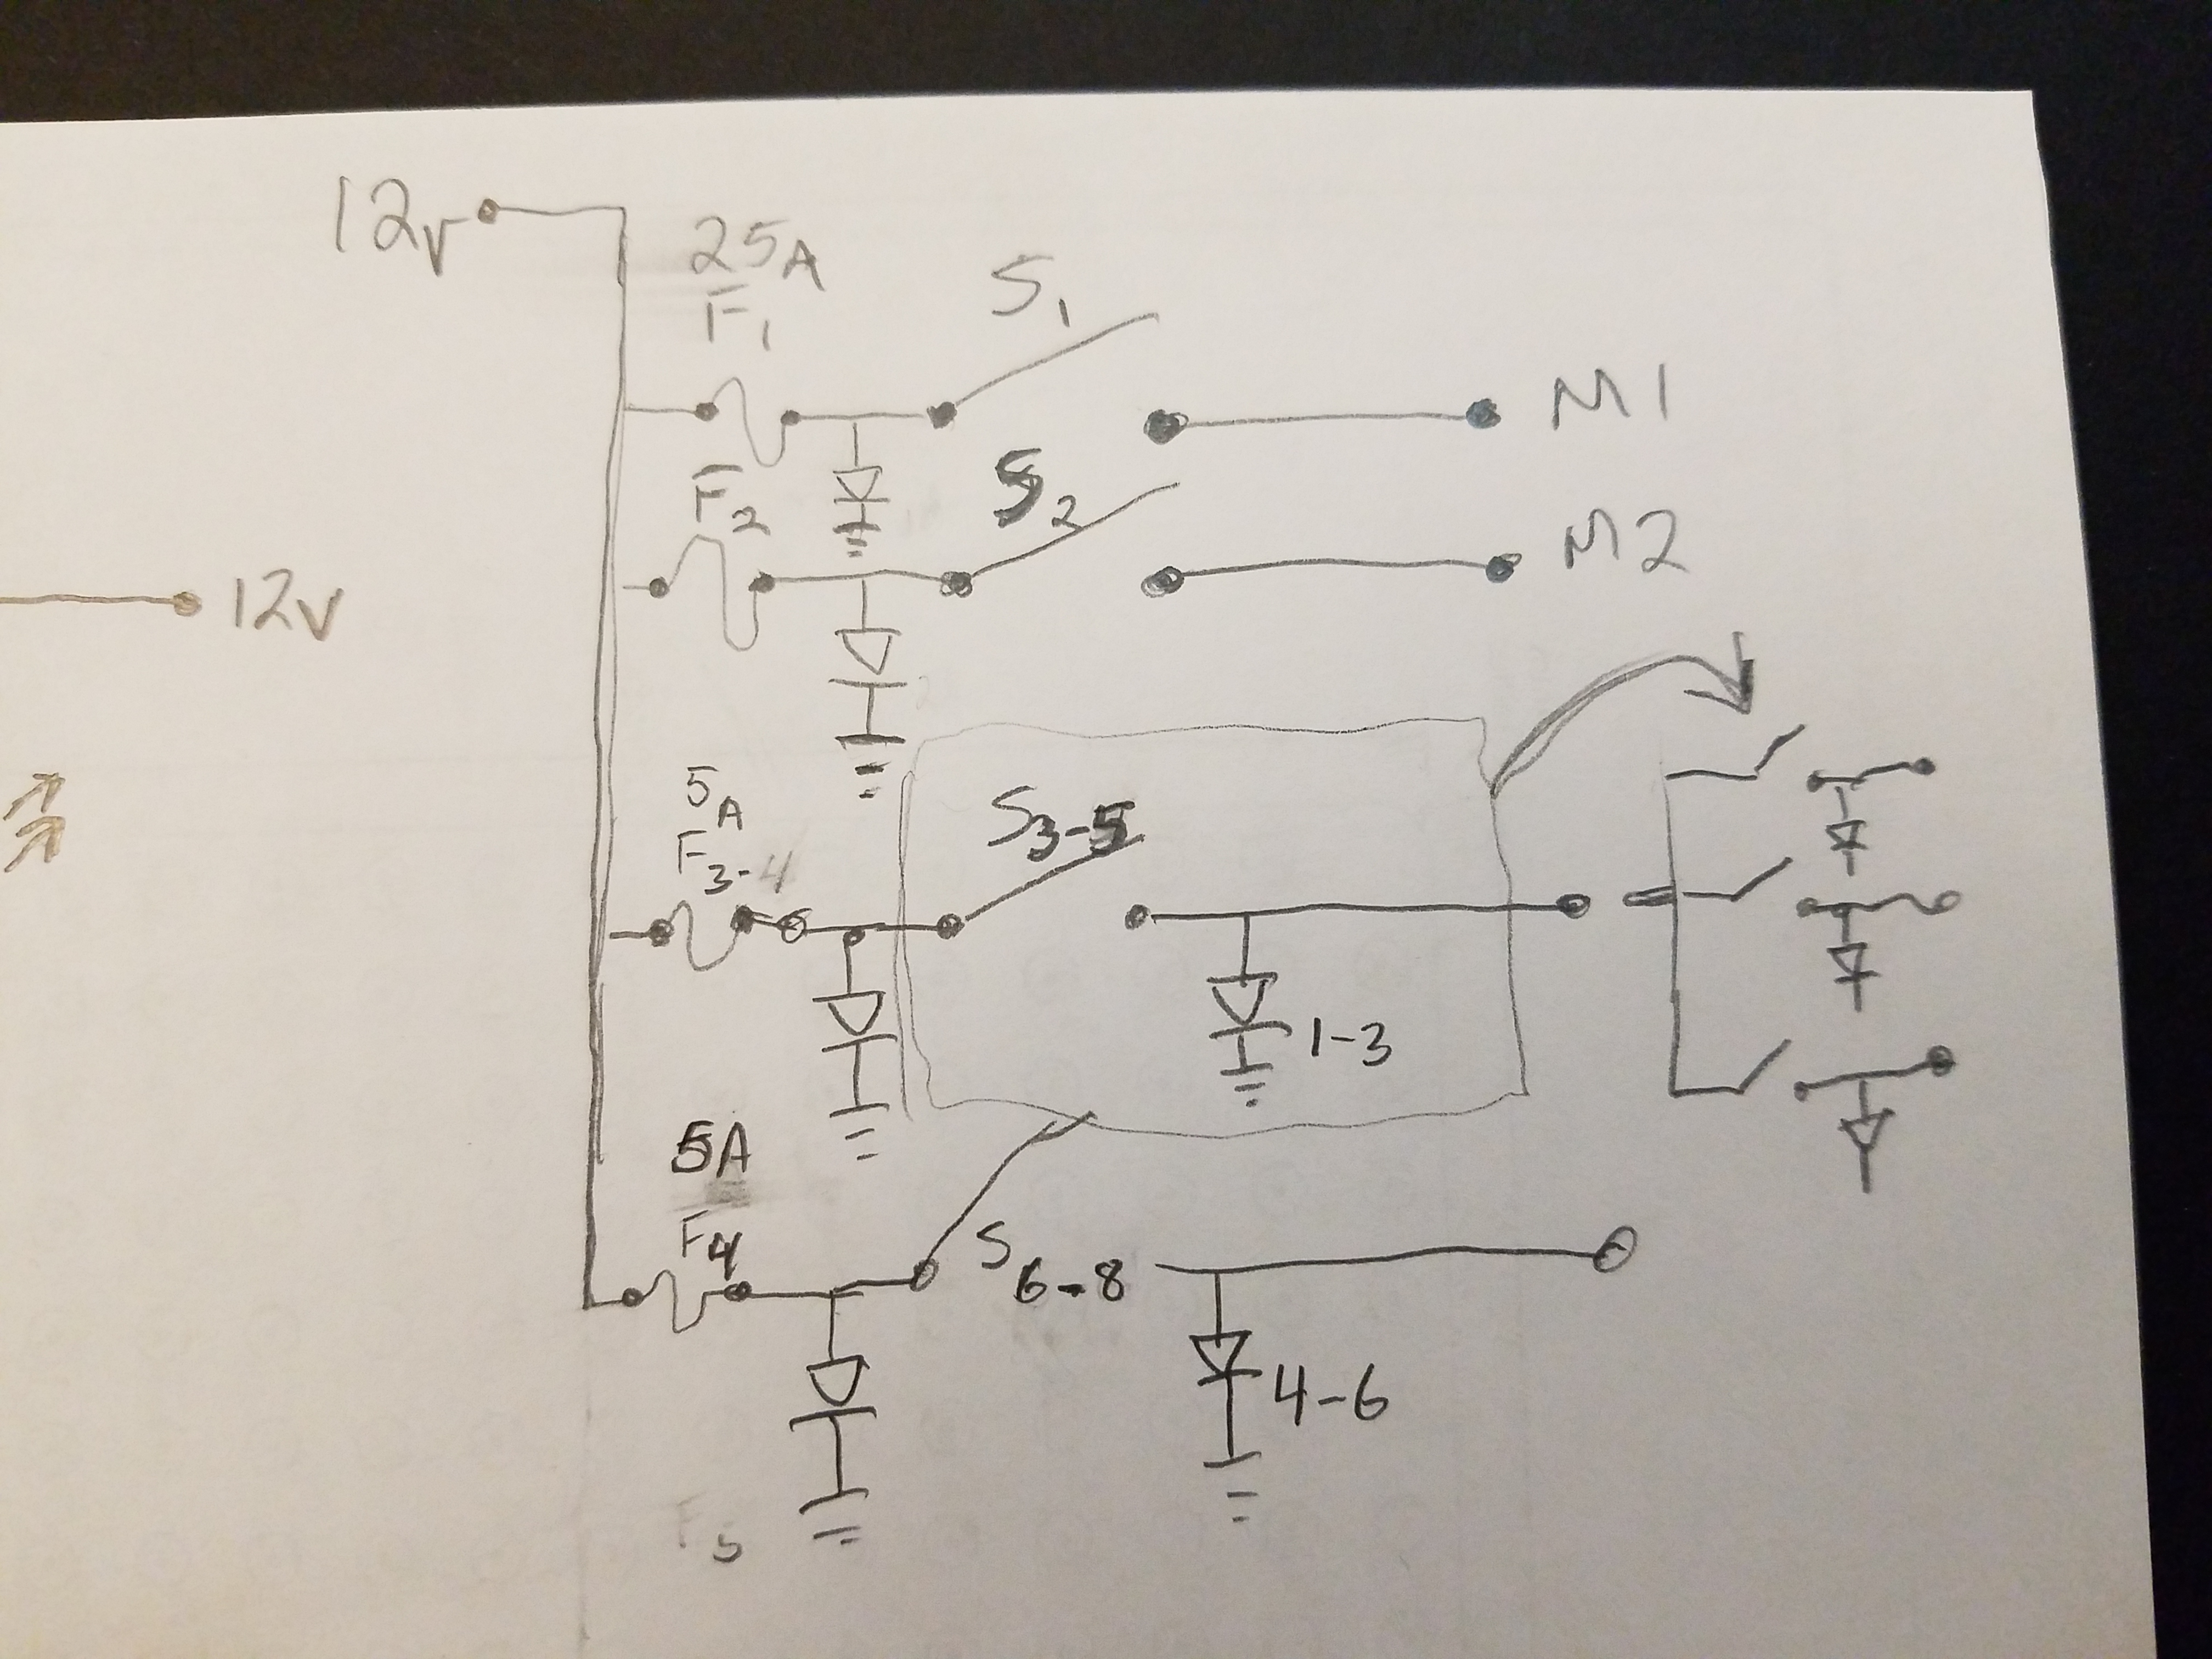 12v
25A
F1
S1
M1
F2
S2
M2
12v
5A
F3-4
S3-5
1-3
5A
F4
S6-8
4-6
F5